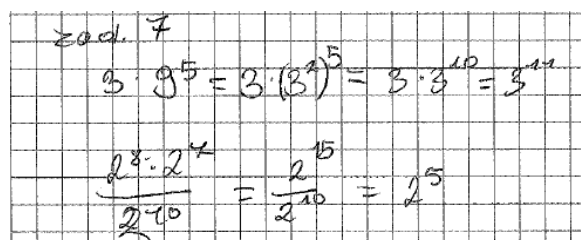 zad. 7
3 · 9^5 = 3 · (3^2)^5 = 3 · 3^10 = 3^11
2^8 · 2^7 / 2^10 = 2^15 / 2^10 = 2^5